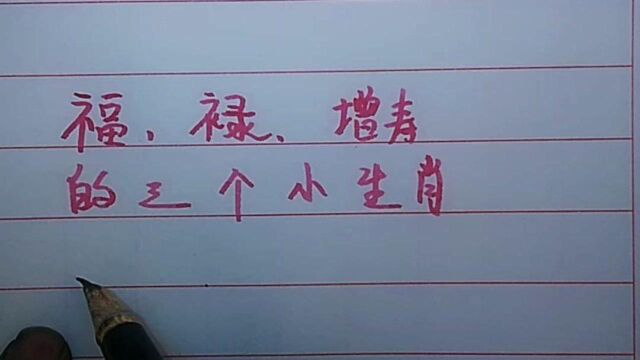 福、禄、增寿
的三个小生肖